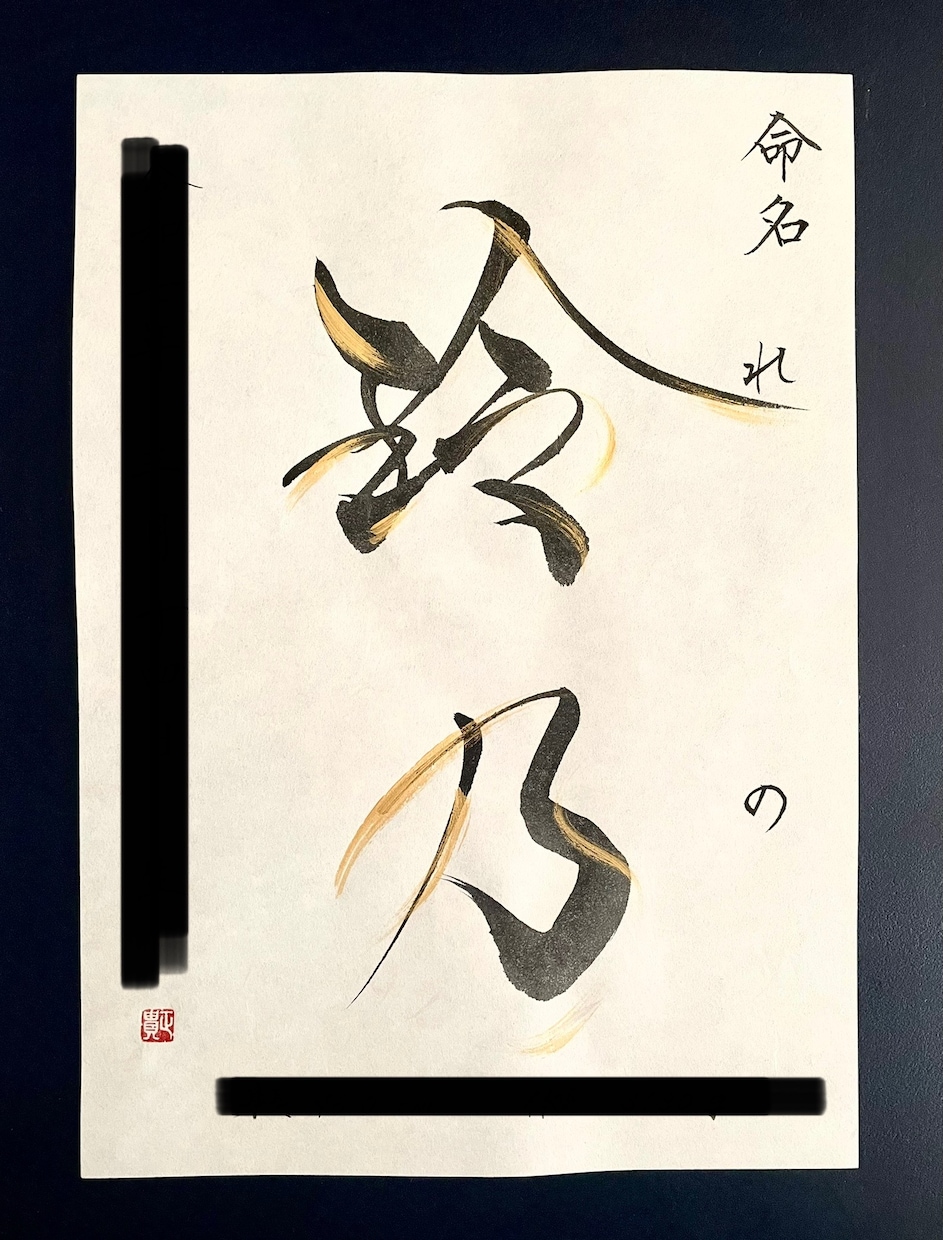 命名 れの
玲乃